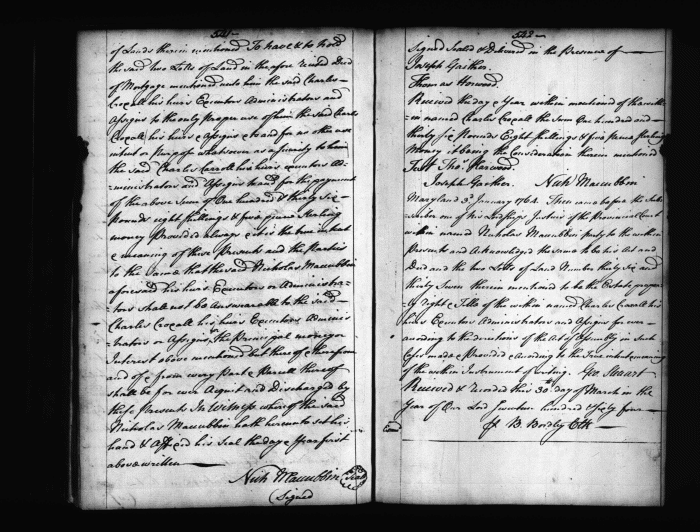 541
of Lands therein mentioned To have & to hold
the said two Lotts of Land in the afore recited Deed
of Mortgage mentioned unto him the said Charles
Croxall his heirs Executors Administrators and
Assigns to the only proper use of him the said Charles
Croxall his heirs & Assigns & to and for no other use
intent or purpose whatsoever as a security to him
the said Charles Carroll his heirs executors Ad=
=ministrators and Assigns and for the payment
of the above Sum of One hundred & thirty Six
pounds eight shillings & five pence Sterling
money Provided always & it is the true intent
& meaning of these Presents and the Parties
to the Same that the said Nicholas Maccubbin
aforesaid his heirs Executors or Administra=
=tors shall not be answerable to the said
Charles Croxall his heirs Executors Adminis=
=trators or Assigns, the Principal money or
Interest above mentioned but thereof & therefrom
and of & from every part & Parcell thereof
shall be for ever Acquit and Discharged by
these Presents In Witness whereof the said
Nicholas Maccubbin hath hereunto set his
hand & Affixed his Seal the day & Year first
above written
Nich Maccubbin Seal
Signed
542
Signed Sealed & Delivered in the Presence of
Joseph Gaither.
Thomas Harwood.
Received the day & Year within mentioned of the with=
in named Charles Croxall the Sum One hundred and
thirty Six Pounds Eight Shillings & five pence Sterling
Money it being the Consideration therein mentioned
Test Thos. Harwood.
Joseph Gaither. Nich Maccubbin
Maryland 3d January 1764. Then came before the Subs
scriber one of his Lordships Justices of the Provincial Court
within named Nicholas Maccubbin party to the within
Presents and Acknowledged the same to be his Act and
Deed and the two Lotts of Land Number thirty Six and
thirty Seven therein mentioned to be the Estate proper=
=ty right & Title of the within named Charles Croxall his
heirs Executors Administrators and Assigns for ever
according to the directions of the Act of Assembly in such
Case made & Provided & according to the true intent & meaning
of the within Instrument of writing. Geo. Steuart
Received & Recorded this 30th day of March in the
Year of Our Lord Seventeen hundred & Sixty four
B. Bordley Clk